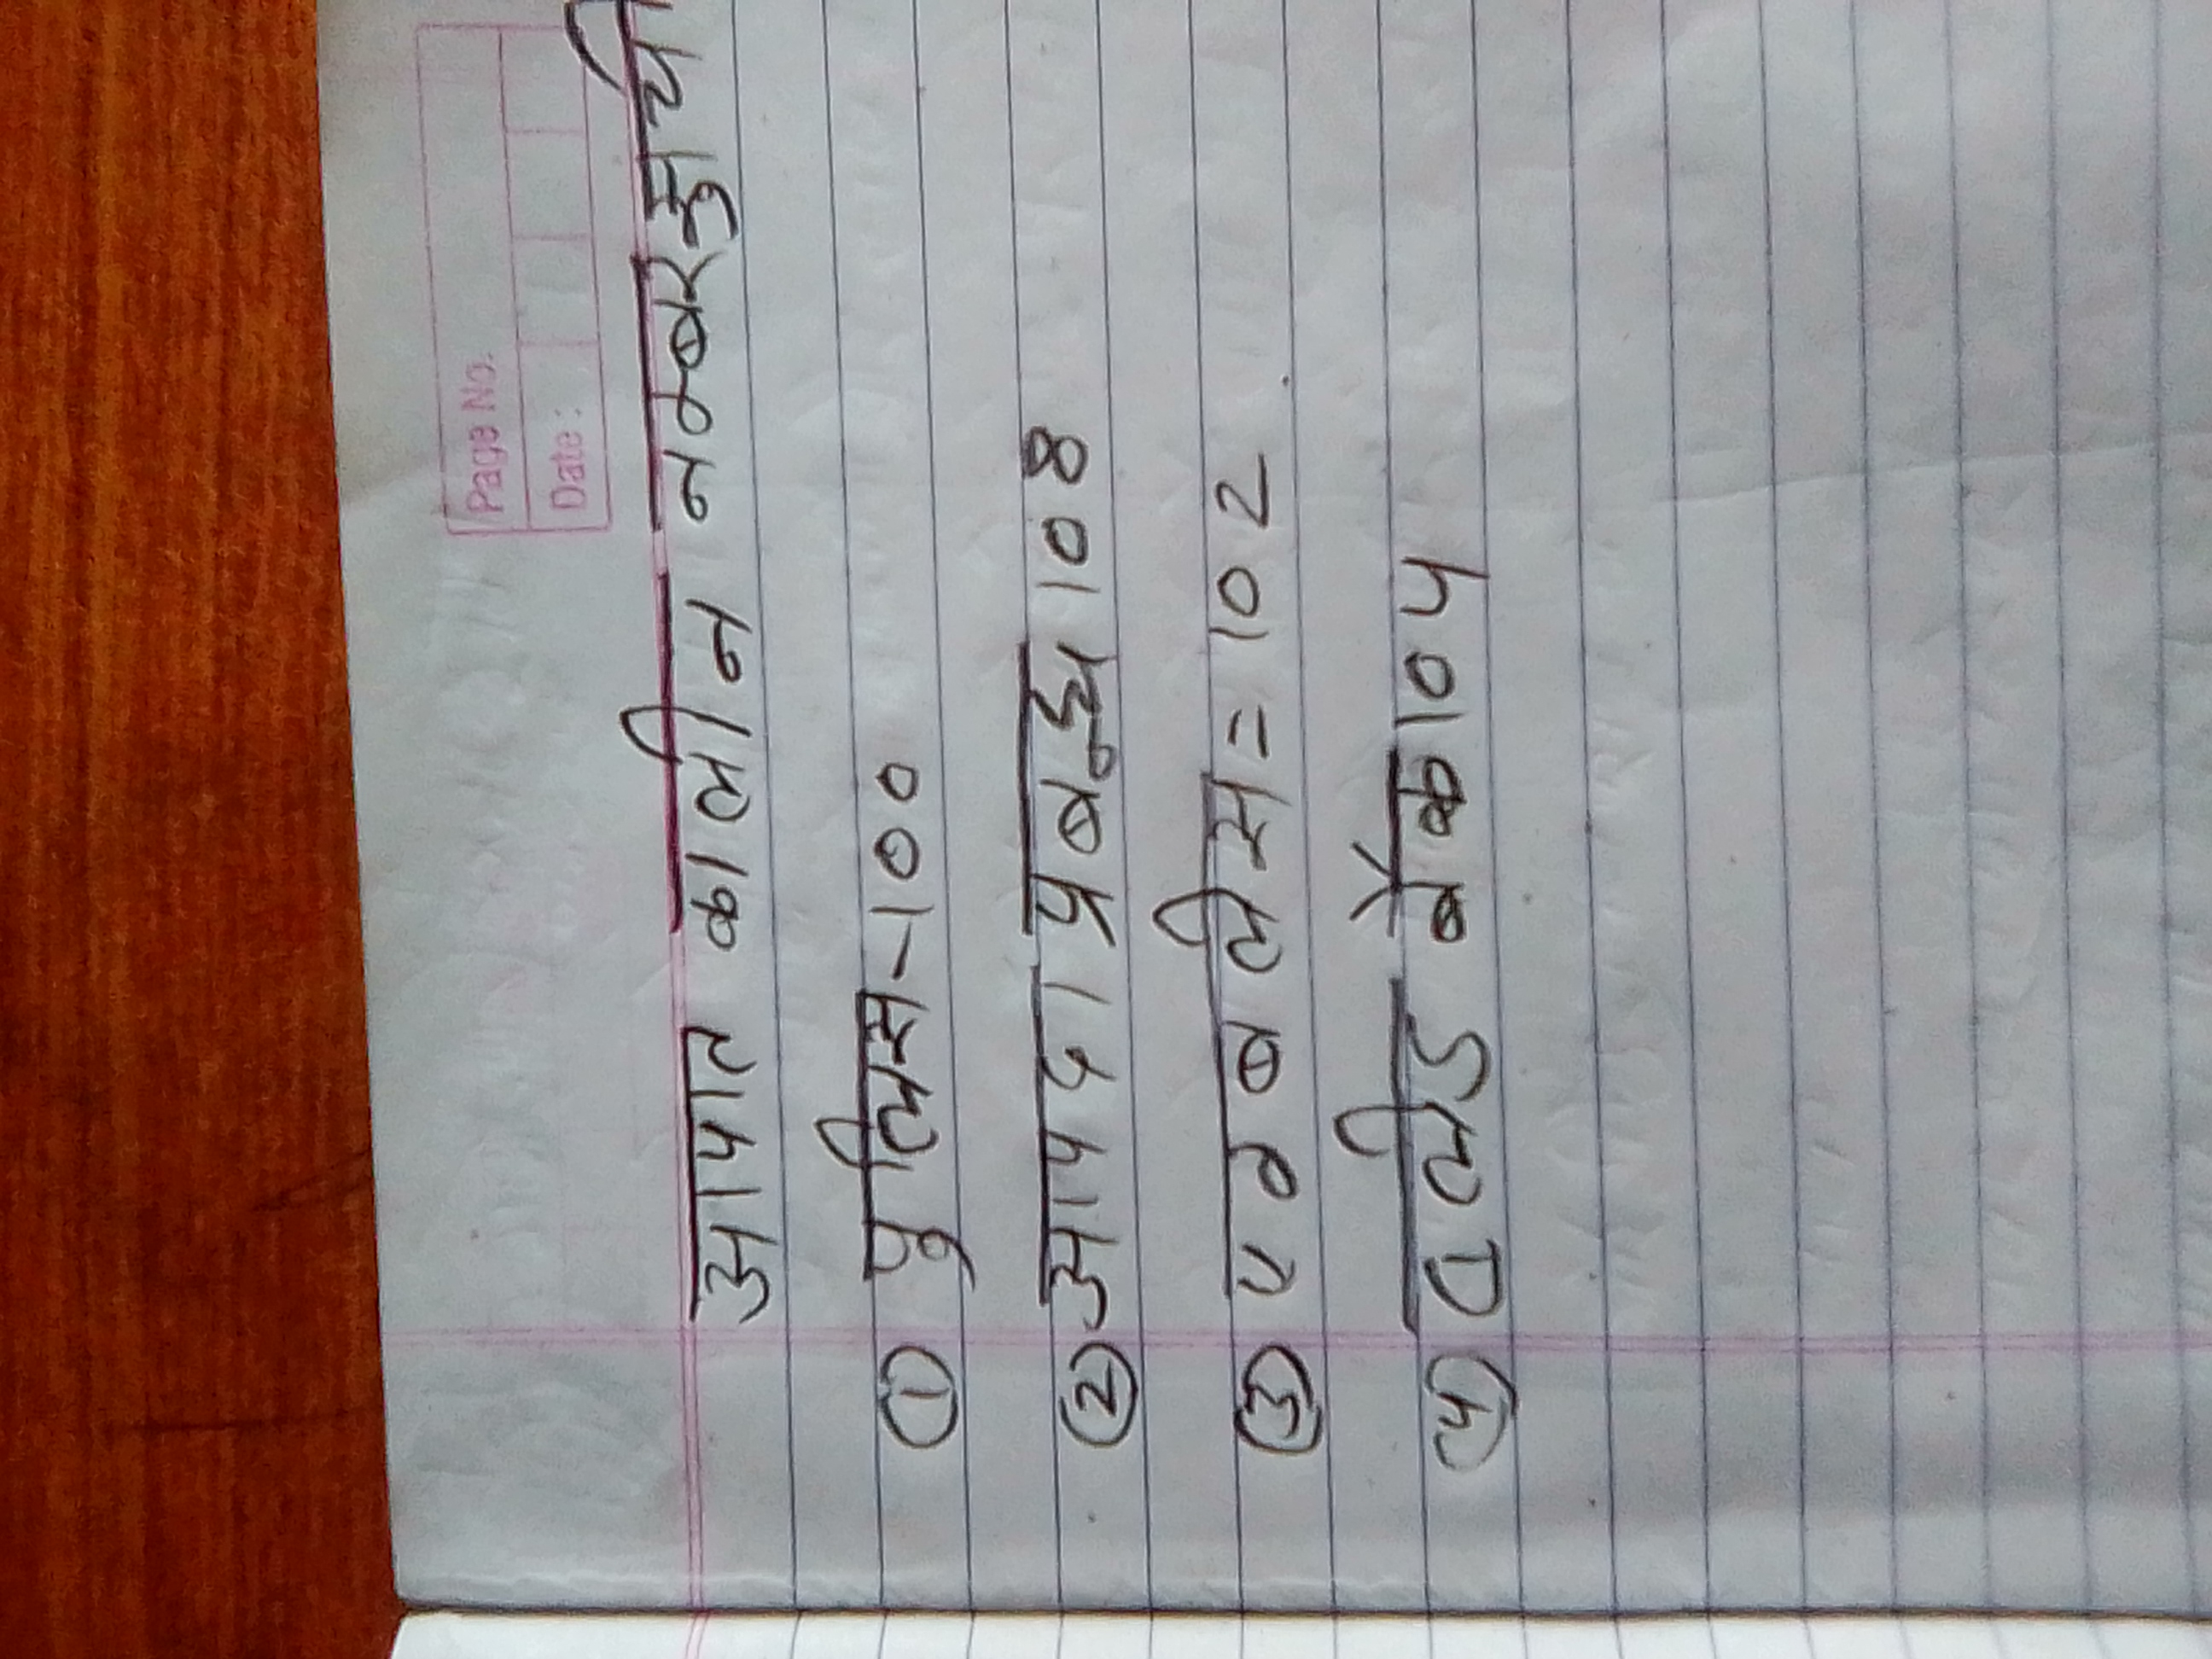 Page No.
Date :
आपात कालीन नम्बर सूची
① पुलिस-100
② आपदा प्रबन्ध 108
③ एम्बुलेंस = 102
④ ब्लड बैंक 104